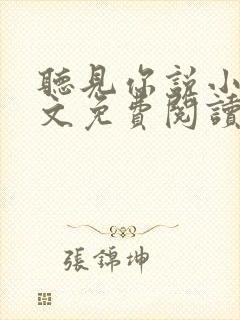 聽見你說小
文免費閱讀
張錦坤